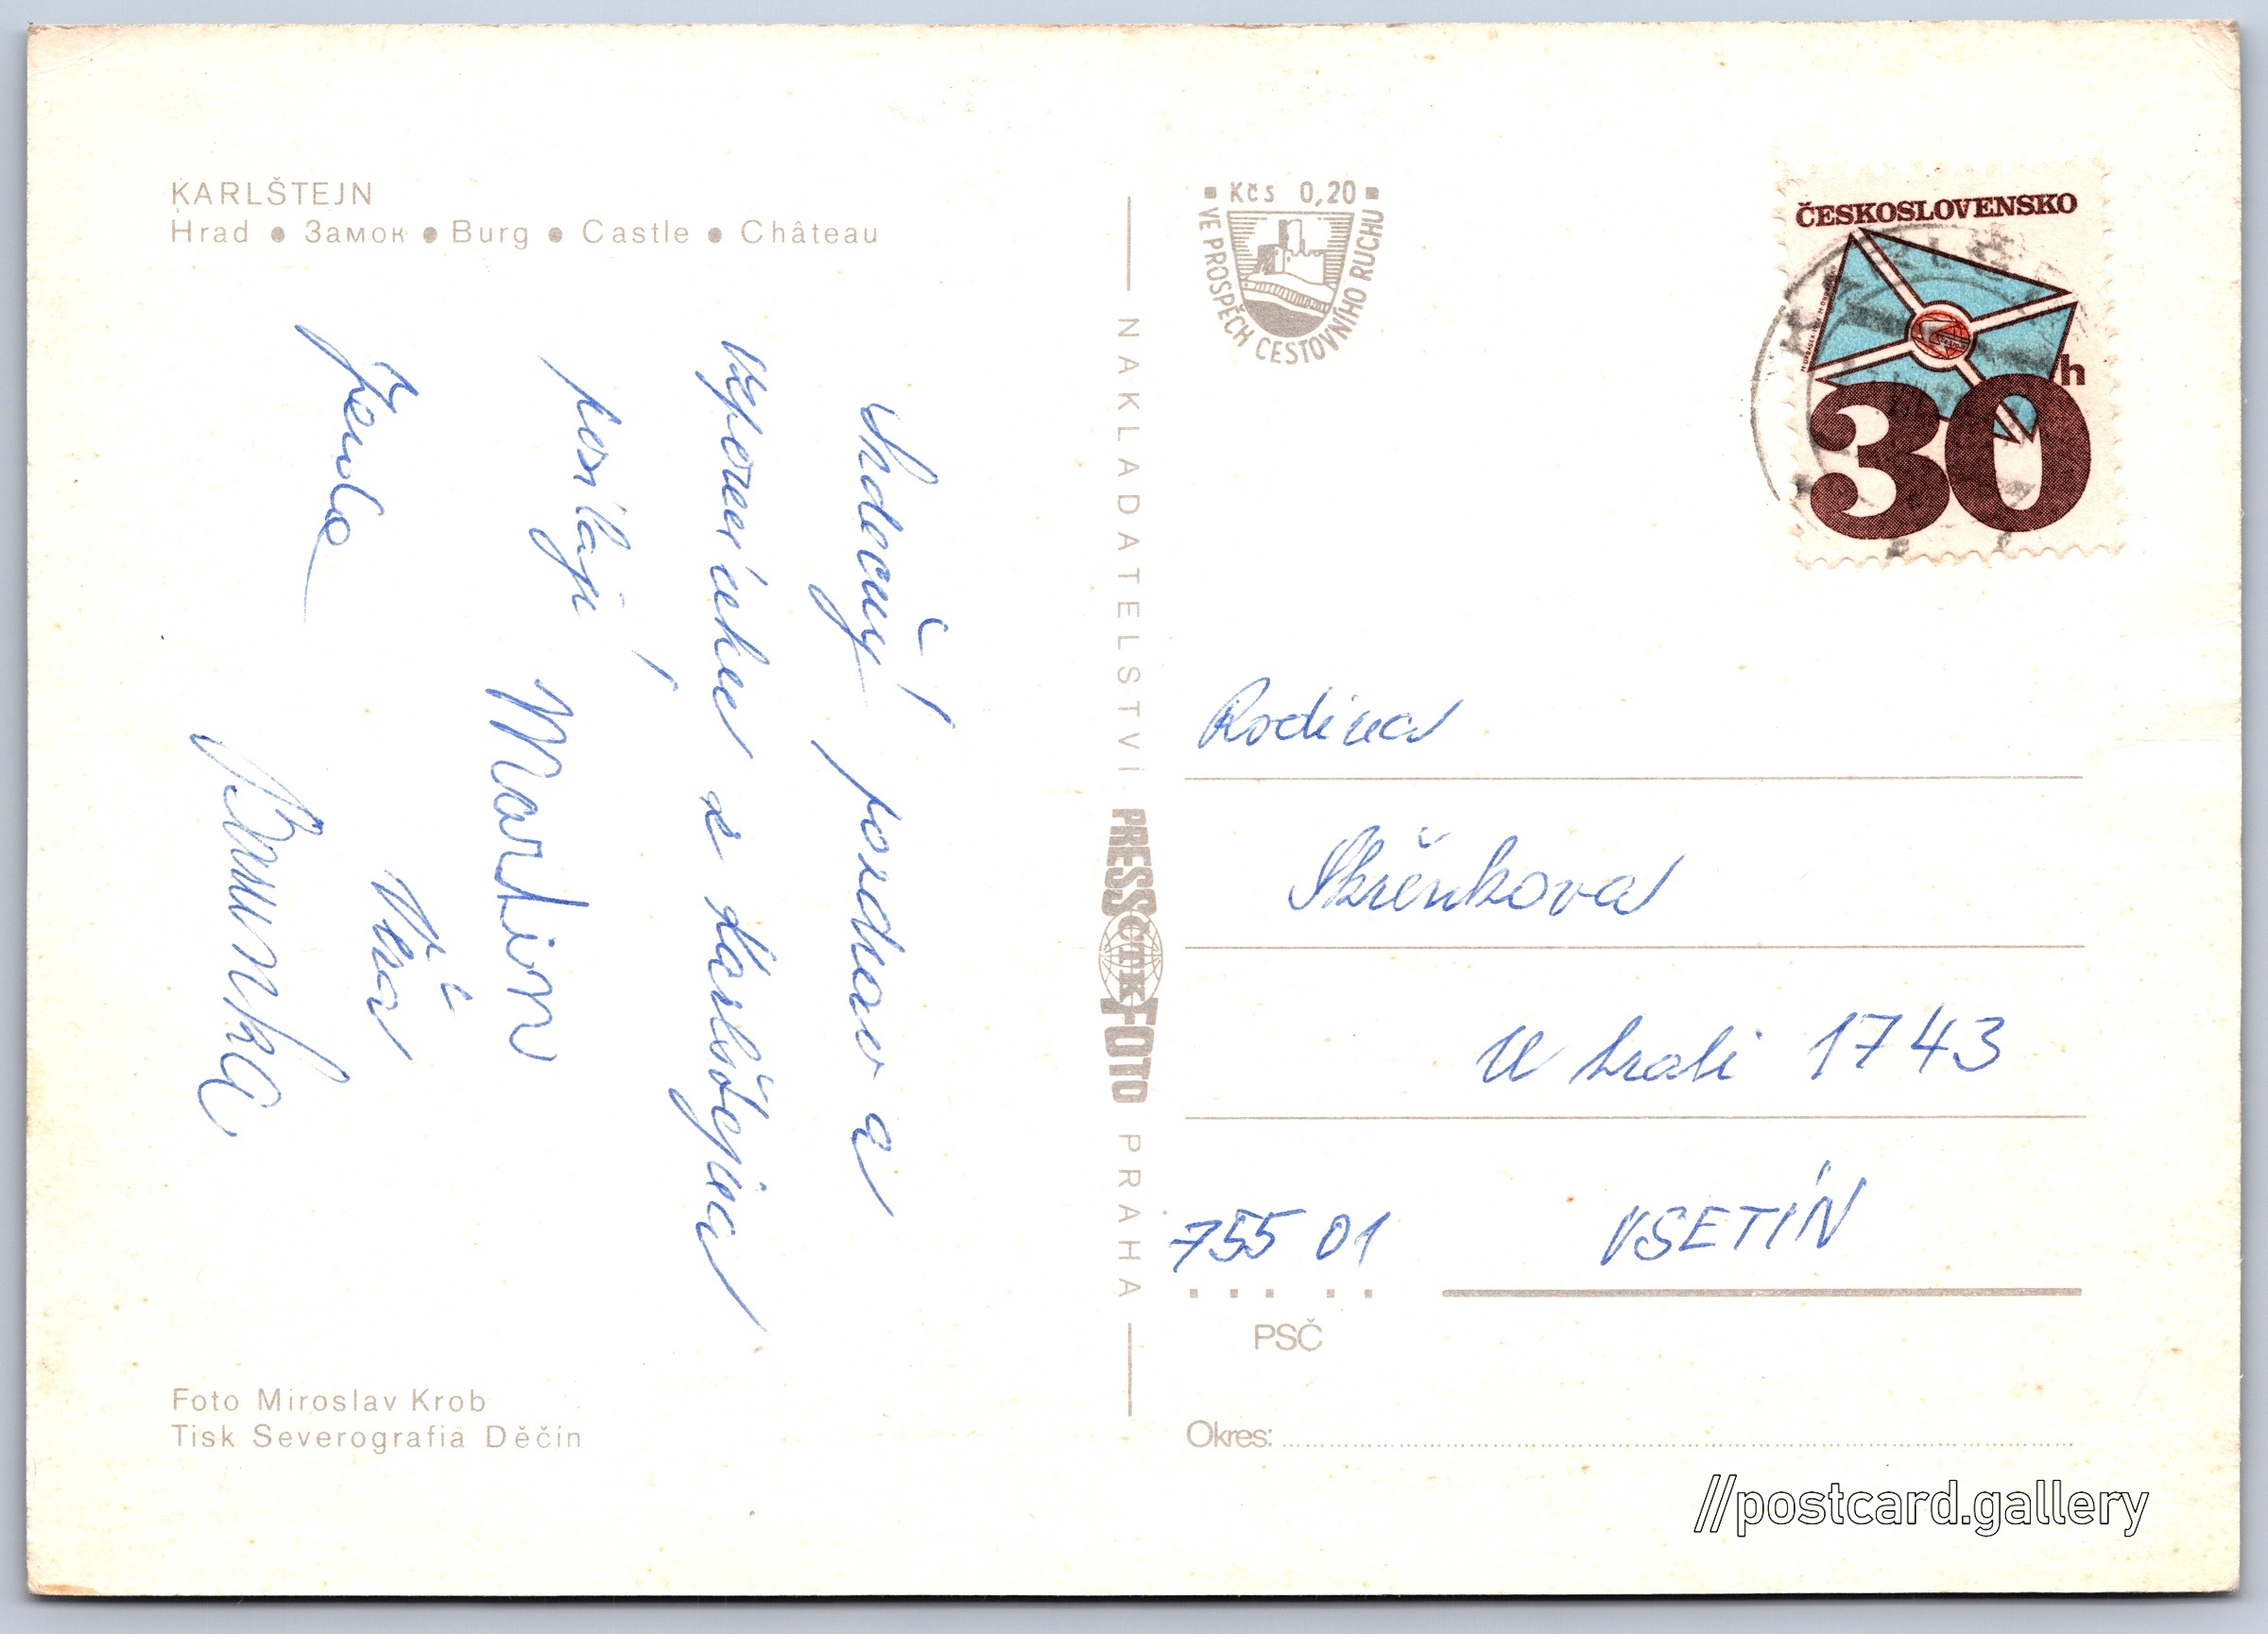 KARLŠTEJN
Hrad ● Замок ● Burg ● Castle ● Château
Srdečný pozdrav a
vzpomínku z Karlštejna
posílají
Martin
Jenda
Věra
Barunka
Foto Miroslav Krob
Tisk Severografia Děčín
NAKLADATELSTVÍ PRESSFOTO PRAHA
ČTK
Kčs 0,20
VE PROSPĚCH CESTOVNÍHO RUCHU
ČESKOSLOVENSKO
30h
Rodina
Skřenkova
U trati 1743
755 01 VSETÍN
PSČ
Okres:
//postcard.gallery